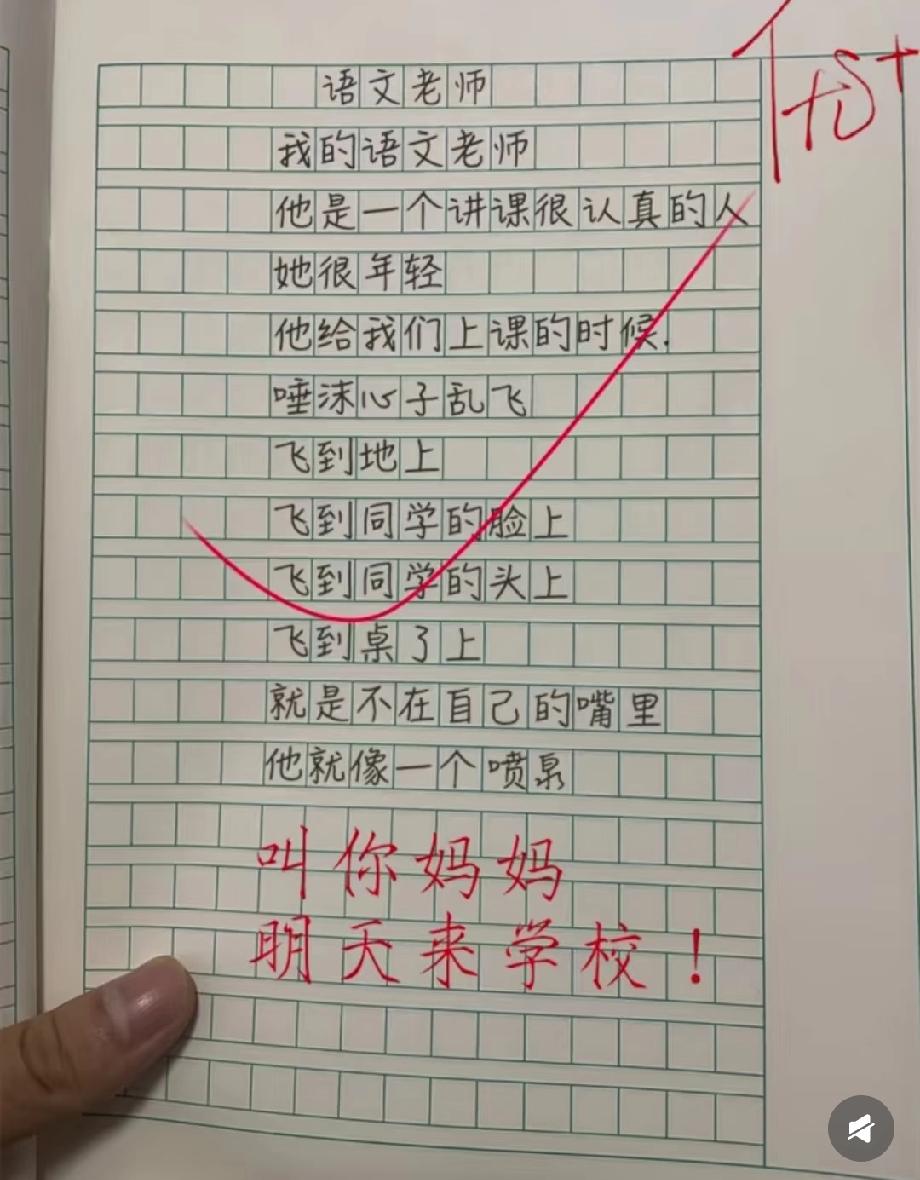 优+
语文老师
我的语文老师
他是一个讲课很认真的人
她很年轻
他给我们上课的时候.
唾沫心子乱飞
飞到地上
飞到同学的脸上
飞到同学的头上
飞到桌了上
就是不在自己的嘴里
他就像一个喷泉
叫你妈妈
明天来学校！